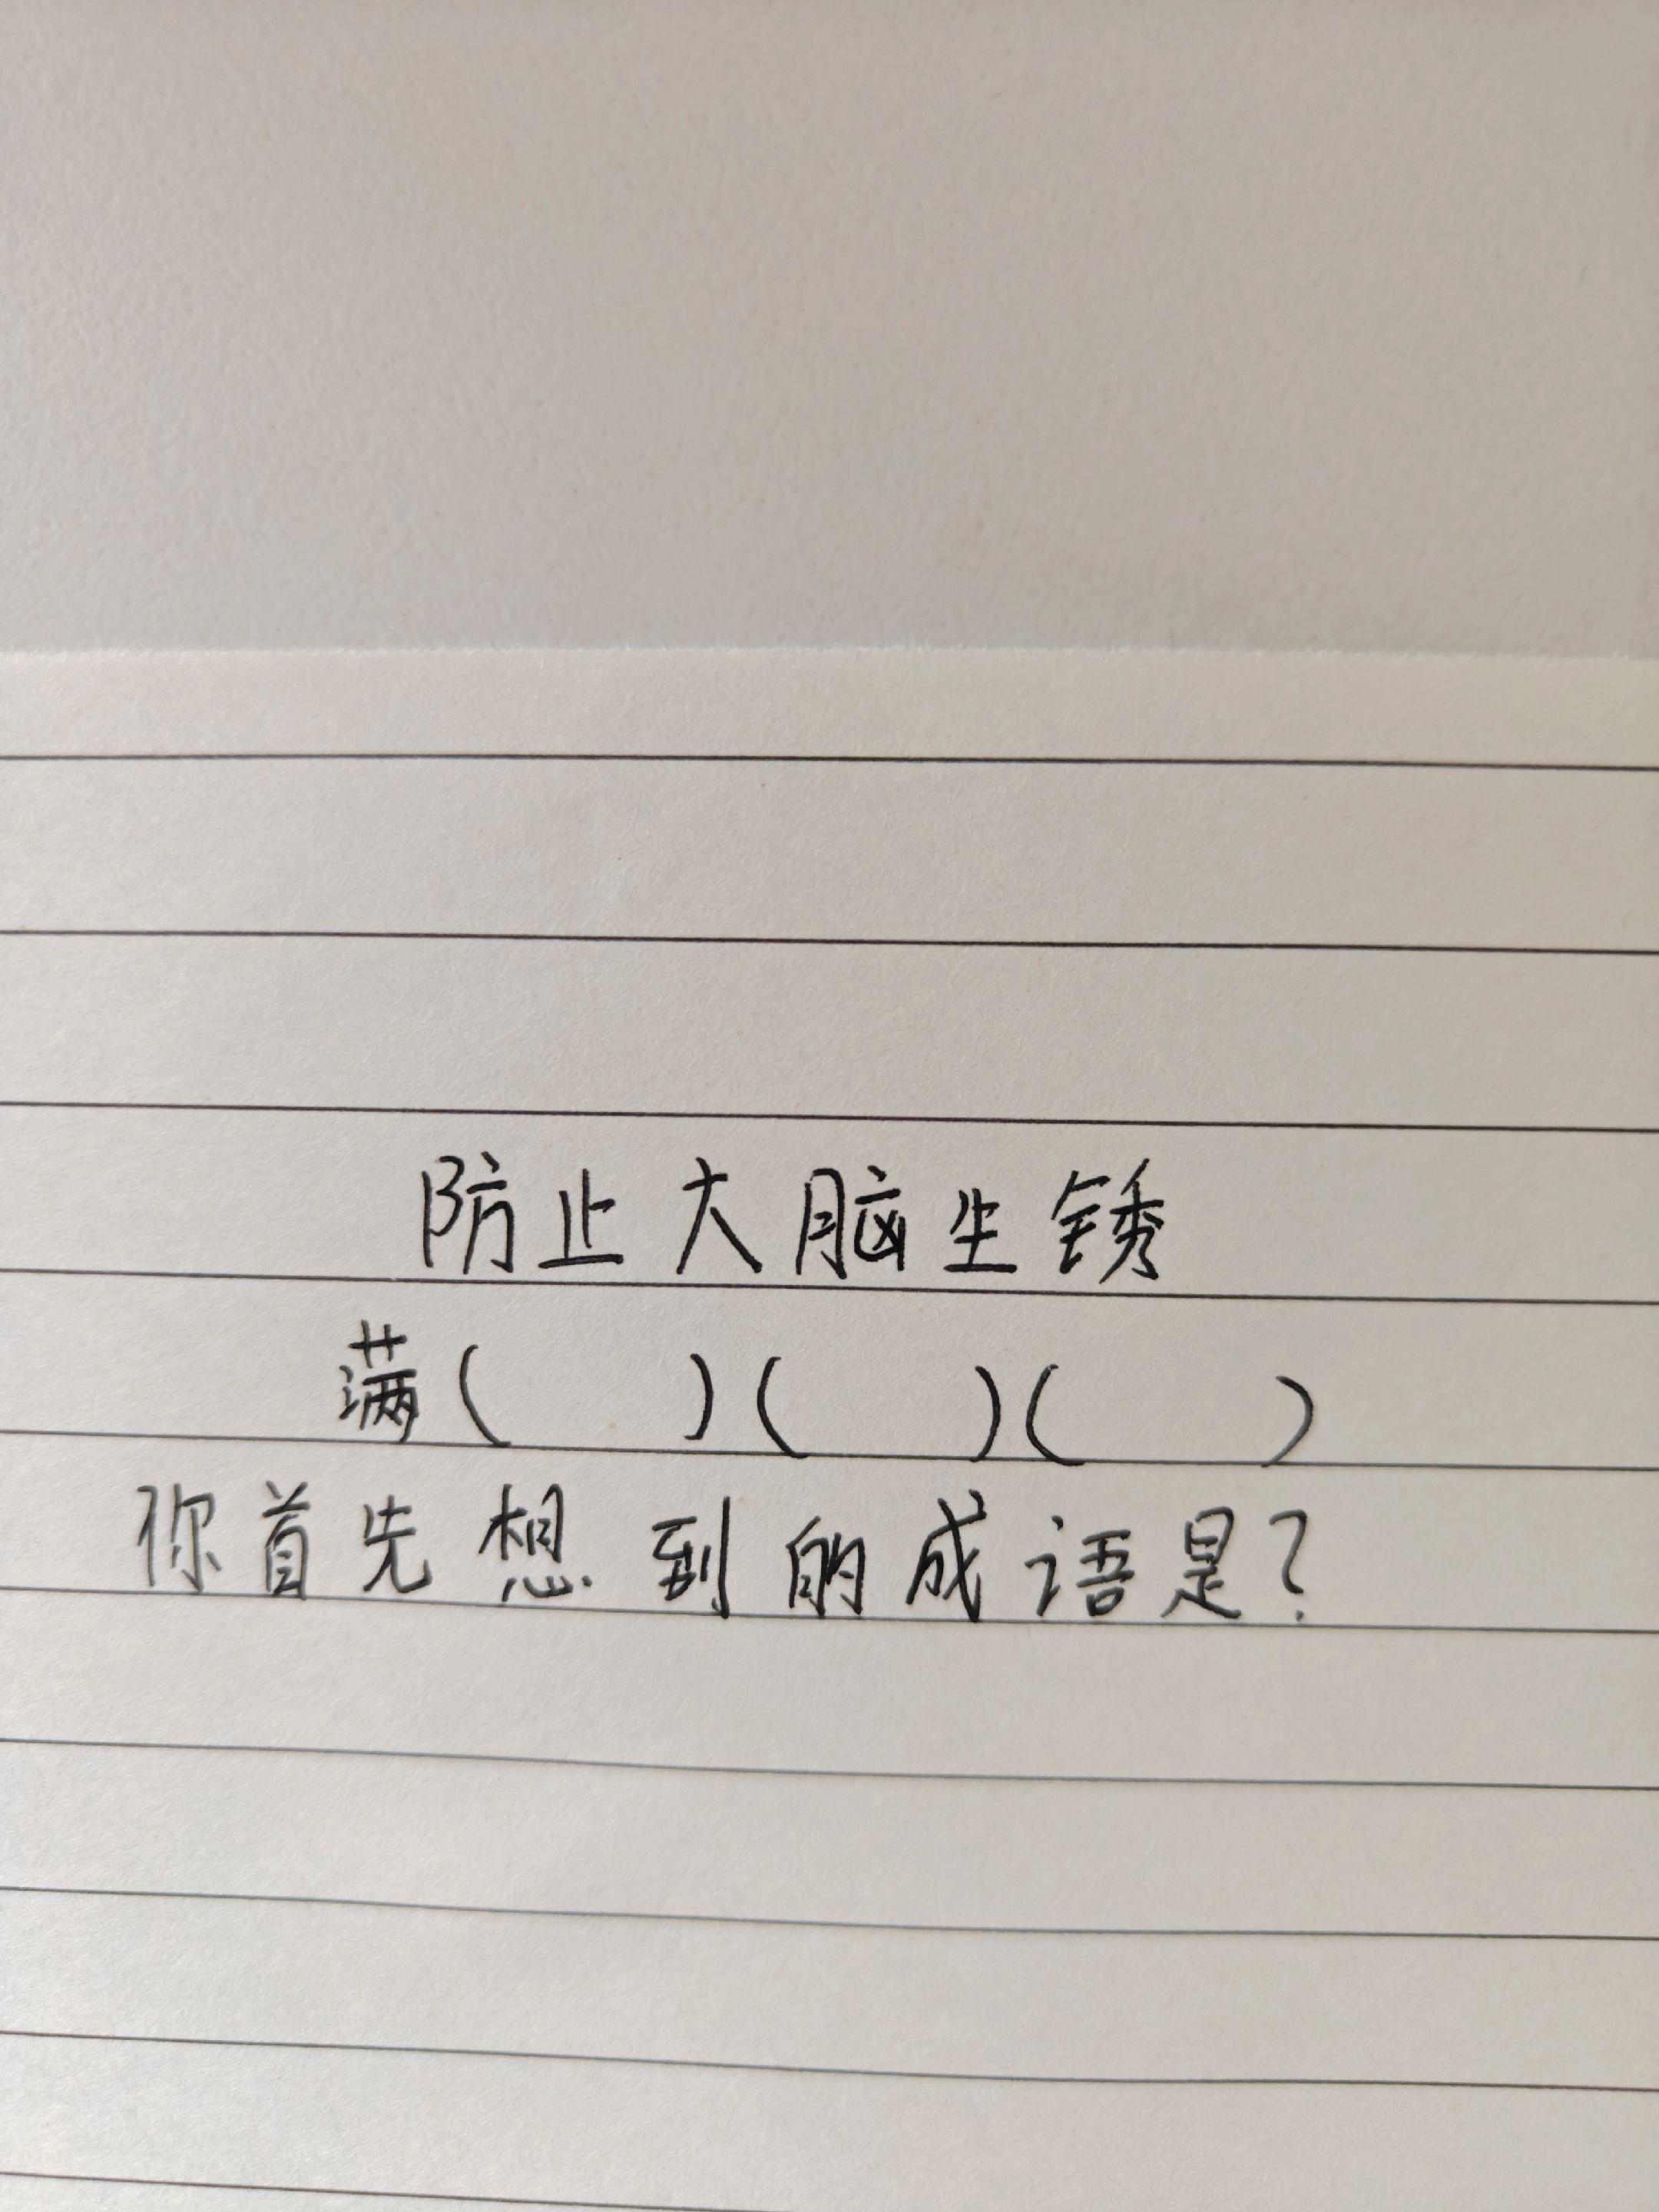 防止大脑生锈
满(  )(  )(  )
你首先想到的成语是?